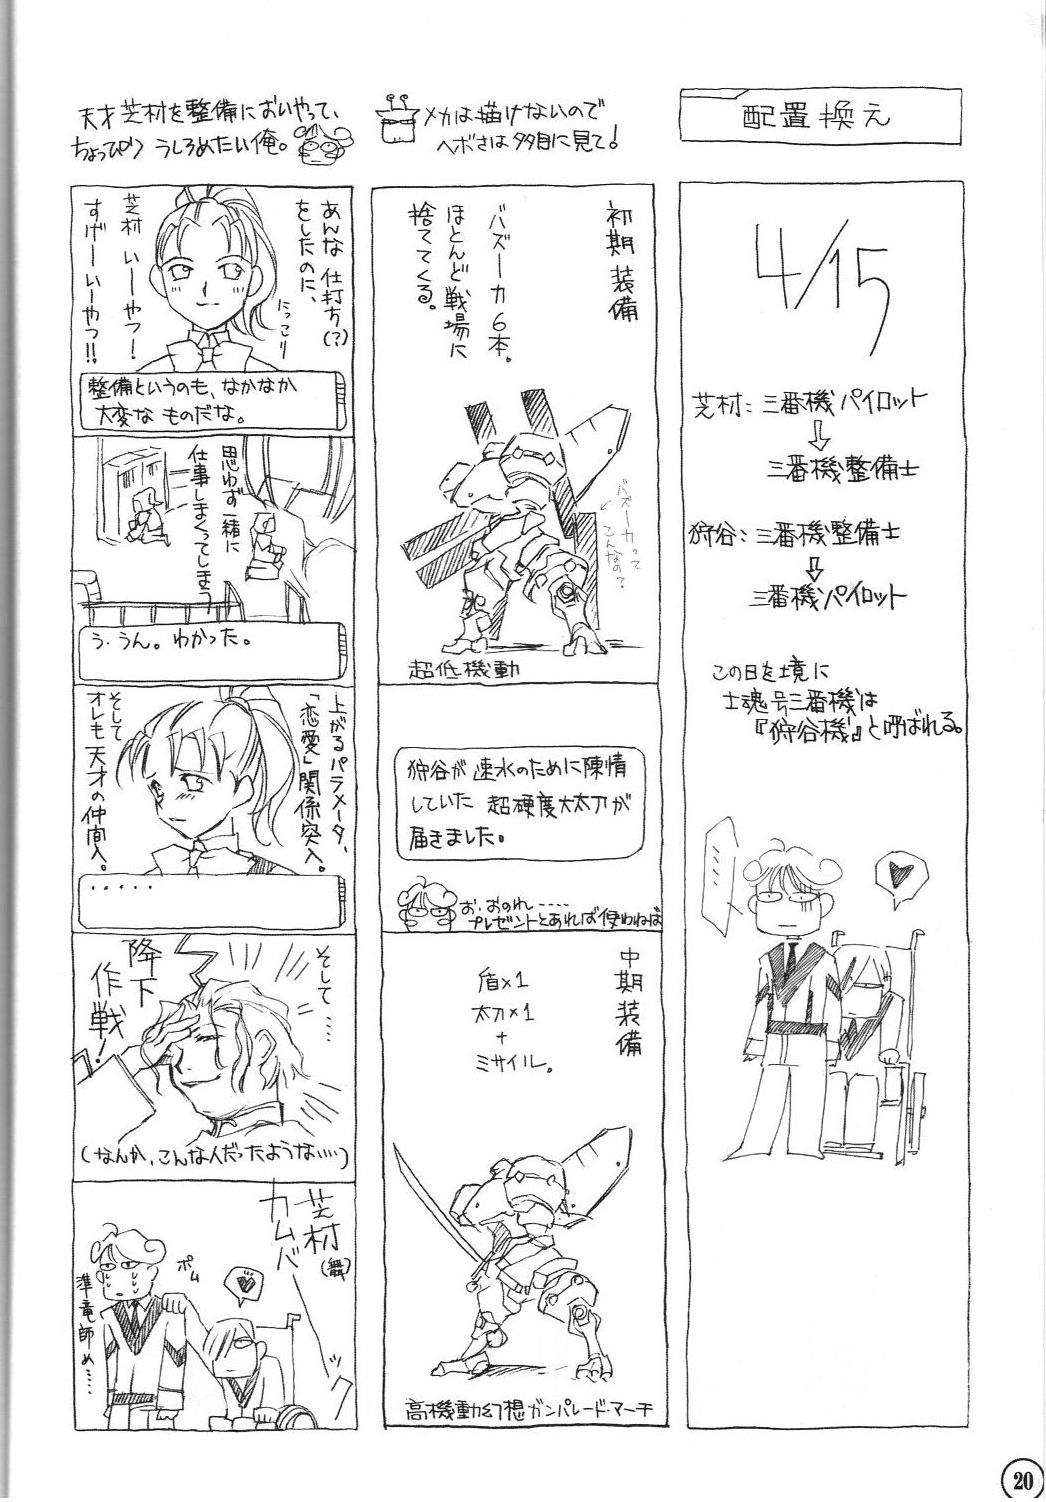 配置換え
4/15
芝村：三番機パイロット
⇩
三番機整備士
狩谷：三番機整備士
⇩
三番機パイロット
この日を境に
士魂号三番機は
『狩谷機』と呼ばれる。
‥‥‥
メカは描けないので
ヘボさは多目に見て！
初期装備
バズーカ6本。
ほとんど戦場に
捨ててくる。
バズーカって
こんなの？
超低機動
狩谷が速水のために陳情
していた超硬度大太刀が
届きました。
お、おのれ‥‥
プレゼントとあれば使わねば
中期装備
盾×1
太刀×1
+
ミサイル。
高機動幻想ガンパレード・マーチ
天才芝村を整備においやって、
ちょっぴりうしろめたい俺。
あんな仕打ち(?)
をしたのに、
にっこり
芝村いーやつー！
すげーいーやつ!!
整備というのも、なかなか
大変なものだな。
思わず一緒に
仕事しまくってしまう
う・うん。わかった。
上がるパラメータ、
「恋愛」関係突入。
そして
オレも天才の仲間入。
・・・・・
そして‥‥
降下
作戦！
(なんか、こんな人だったような‥‥)
芝村(舞)
カムバーック
ポム
準竜師め‥‥
20